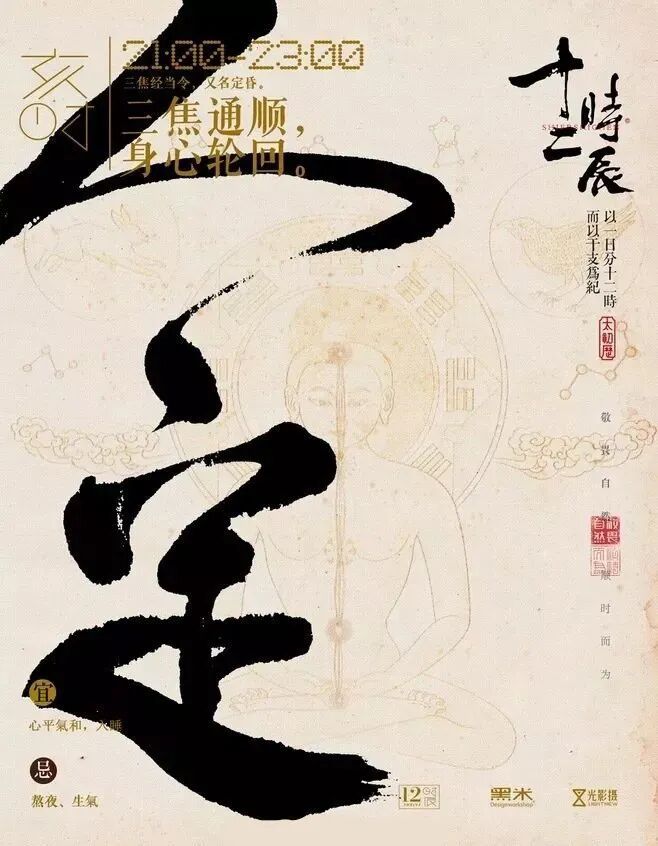 亥时
21:00-23:00
三焦经当令，又名定昏。
三焦通顺，
身心轮回。
人定
十二時辰
以一日分十二時
而以干支爲紀
太初历
敬畏自然
顺时而为
宜
心平氣和，入睡
忌
熬夜、生氣
12時辰
黑米
Designworkshop
光影摄
LIGHTNEW